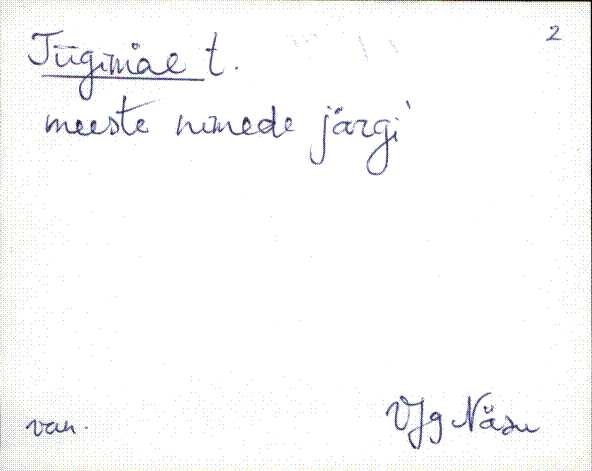 2
Tiigimäe t.
meeste nimede järgi
van.
VJg Näsu